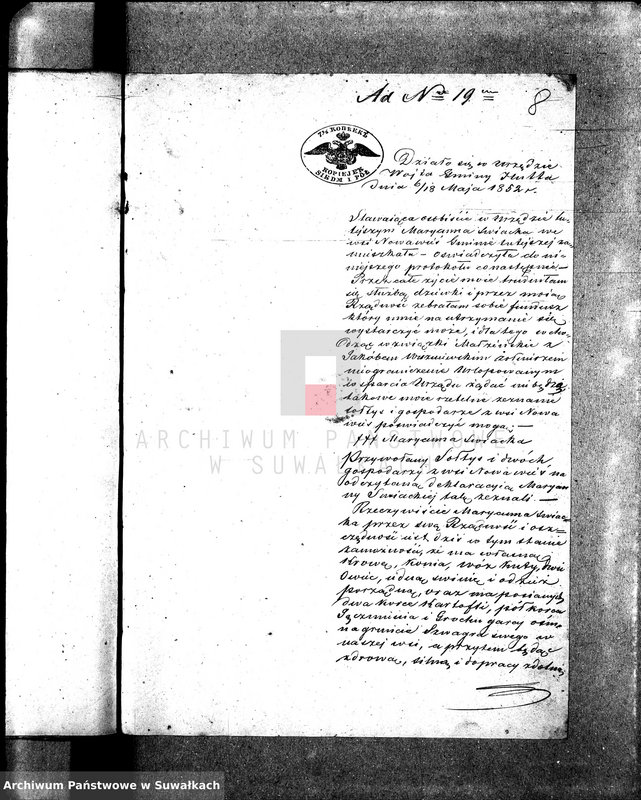 Ad Nr 19
8
7½ КОПѢЕКЪ
KOPIEJEK
SIEDM I PÓŁ
Działo się w Urzędzie
Wójta Gminy Hutta
dnia 6/18 Maja 1852 r.
Stawająca osobiście w Urzędzie tu-
tejszym Maryanna Swiacka we
wsi Nowawieś Gminie tutejszej za-
mieszkała – oświadczyła do ni-
niejszego protokołu co następnie –
Przez całe życie moie trudniłam
się służbą dziewki i przez moią
Rządność zebrałam sobie fundusz
który mnie na utrzymanie się
wystarczyć może, i dla tego wcho-
dząc w związki Małżeńskie z
Jakóbem żołnierzem
nieograniczenie Urlopowanym
wsparcia Urzędu żądać nie będę
takowe moie rzetelne zeznanie
sołtys i gospodarze z wsi Nowa
wieś poświadczyć mogą; –
††† Maryanna Swiacka
Przywołany Sołtys i dwóch
gospodarzy z wsi Nowawieś na
odczytaną deklaracyią Maryan-
ny Swiackiej tak zeznali. –
Rzeczywiście Maryanna Swiac-
ka przez swą Rządność i osz-
czędność iest dziś w tym stanie
zamożności, że ma własną
Krowę, Konia, wóz kuty, dwie
Owiec, iedną swinię i odzież
porządną, oraz ma posianych
dwa korce Kartofli, pół korca
Jęczmienia i Grochu garcy ośm
na gruncie Szwagra swego w
naszej wsi, a przytem będąc
zdrową, silną i do pracy zdolną
ARCHIWUM PAŃSTWOWE
W SUWAŁKACH
Archiwum Państwowe w Suwałkach